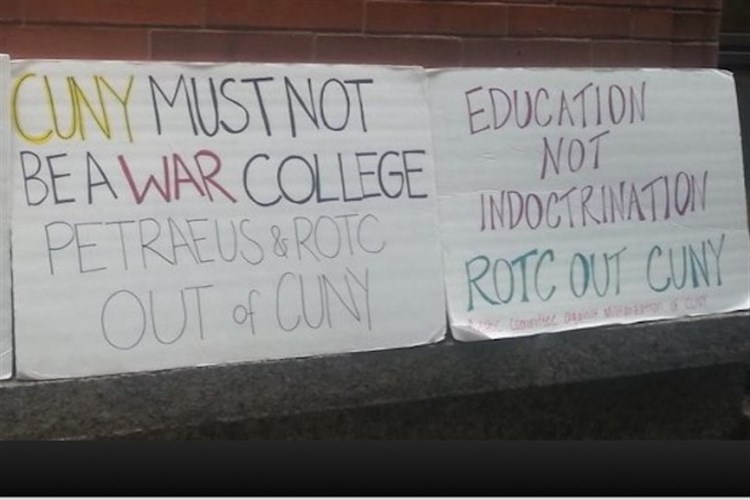 CUNY MUST NOT
BE A WAR COLLEGE
PETRAEUS & ROTC
OUT of CUNY
EDUCATION
NOT
INDOCTRINATION
ROTC OUT CUNY
Committee against Militarization of CUNY